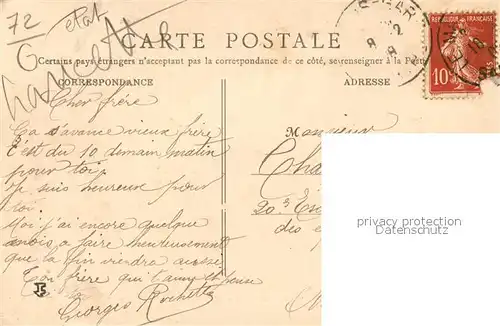 72
G
état
CARTE POSTALE
Certains pays étrangers n'acceptant pas la correspondance de ce côté, se renseigner à la Poste
CORRESPONDANCE
ADRESSE
10
Cher frère
Ça s'avance vieux frère
C'est du 10 demain matin
pour toi,
Je suis heureux pour
toi.
Moi j'ai encore quelque
mois a faire heureusement
que la fin viendra aussi
Ton frère qui t'aime et pense
Georges Rochette
Monsieur
20
des
privacy protection
Datenschutz